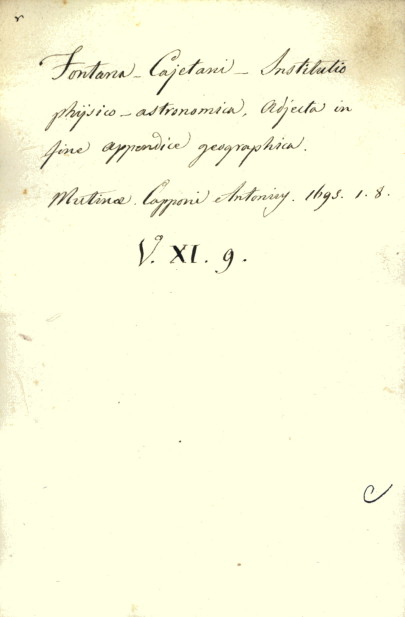 Fontana - Cajetani - Institutio
physico - astronomica, Adjecta in
fine appendice geographica.
Mutinæ. Capponi Antonius. 1695. 1. 8.
V. XI. 9.
C